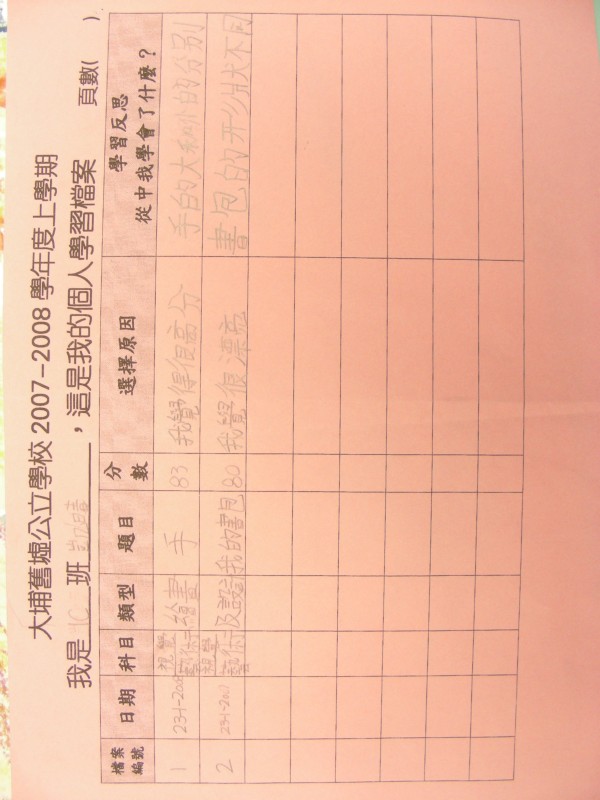 大埔舊墟公立學校 2007-2008 學年度上學期
我是 1C 班 凱晴 ，這是我的個人學習檔案 頁數( )
檔案編號 日期 科目 類型 題目 分數 選擇原因 學習反思 從中我學會了什麼？
1 23-1-2008 視覺藝術 繪畫 手 83 我覺得很高分 手的大和小的分別
2 23-1-200 視覺藝術 及設計 我的書包 80 我覺很漂亮 書包的形狀不同